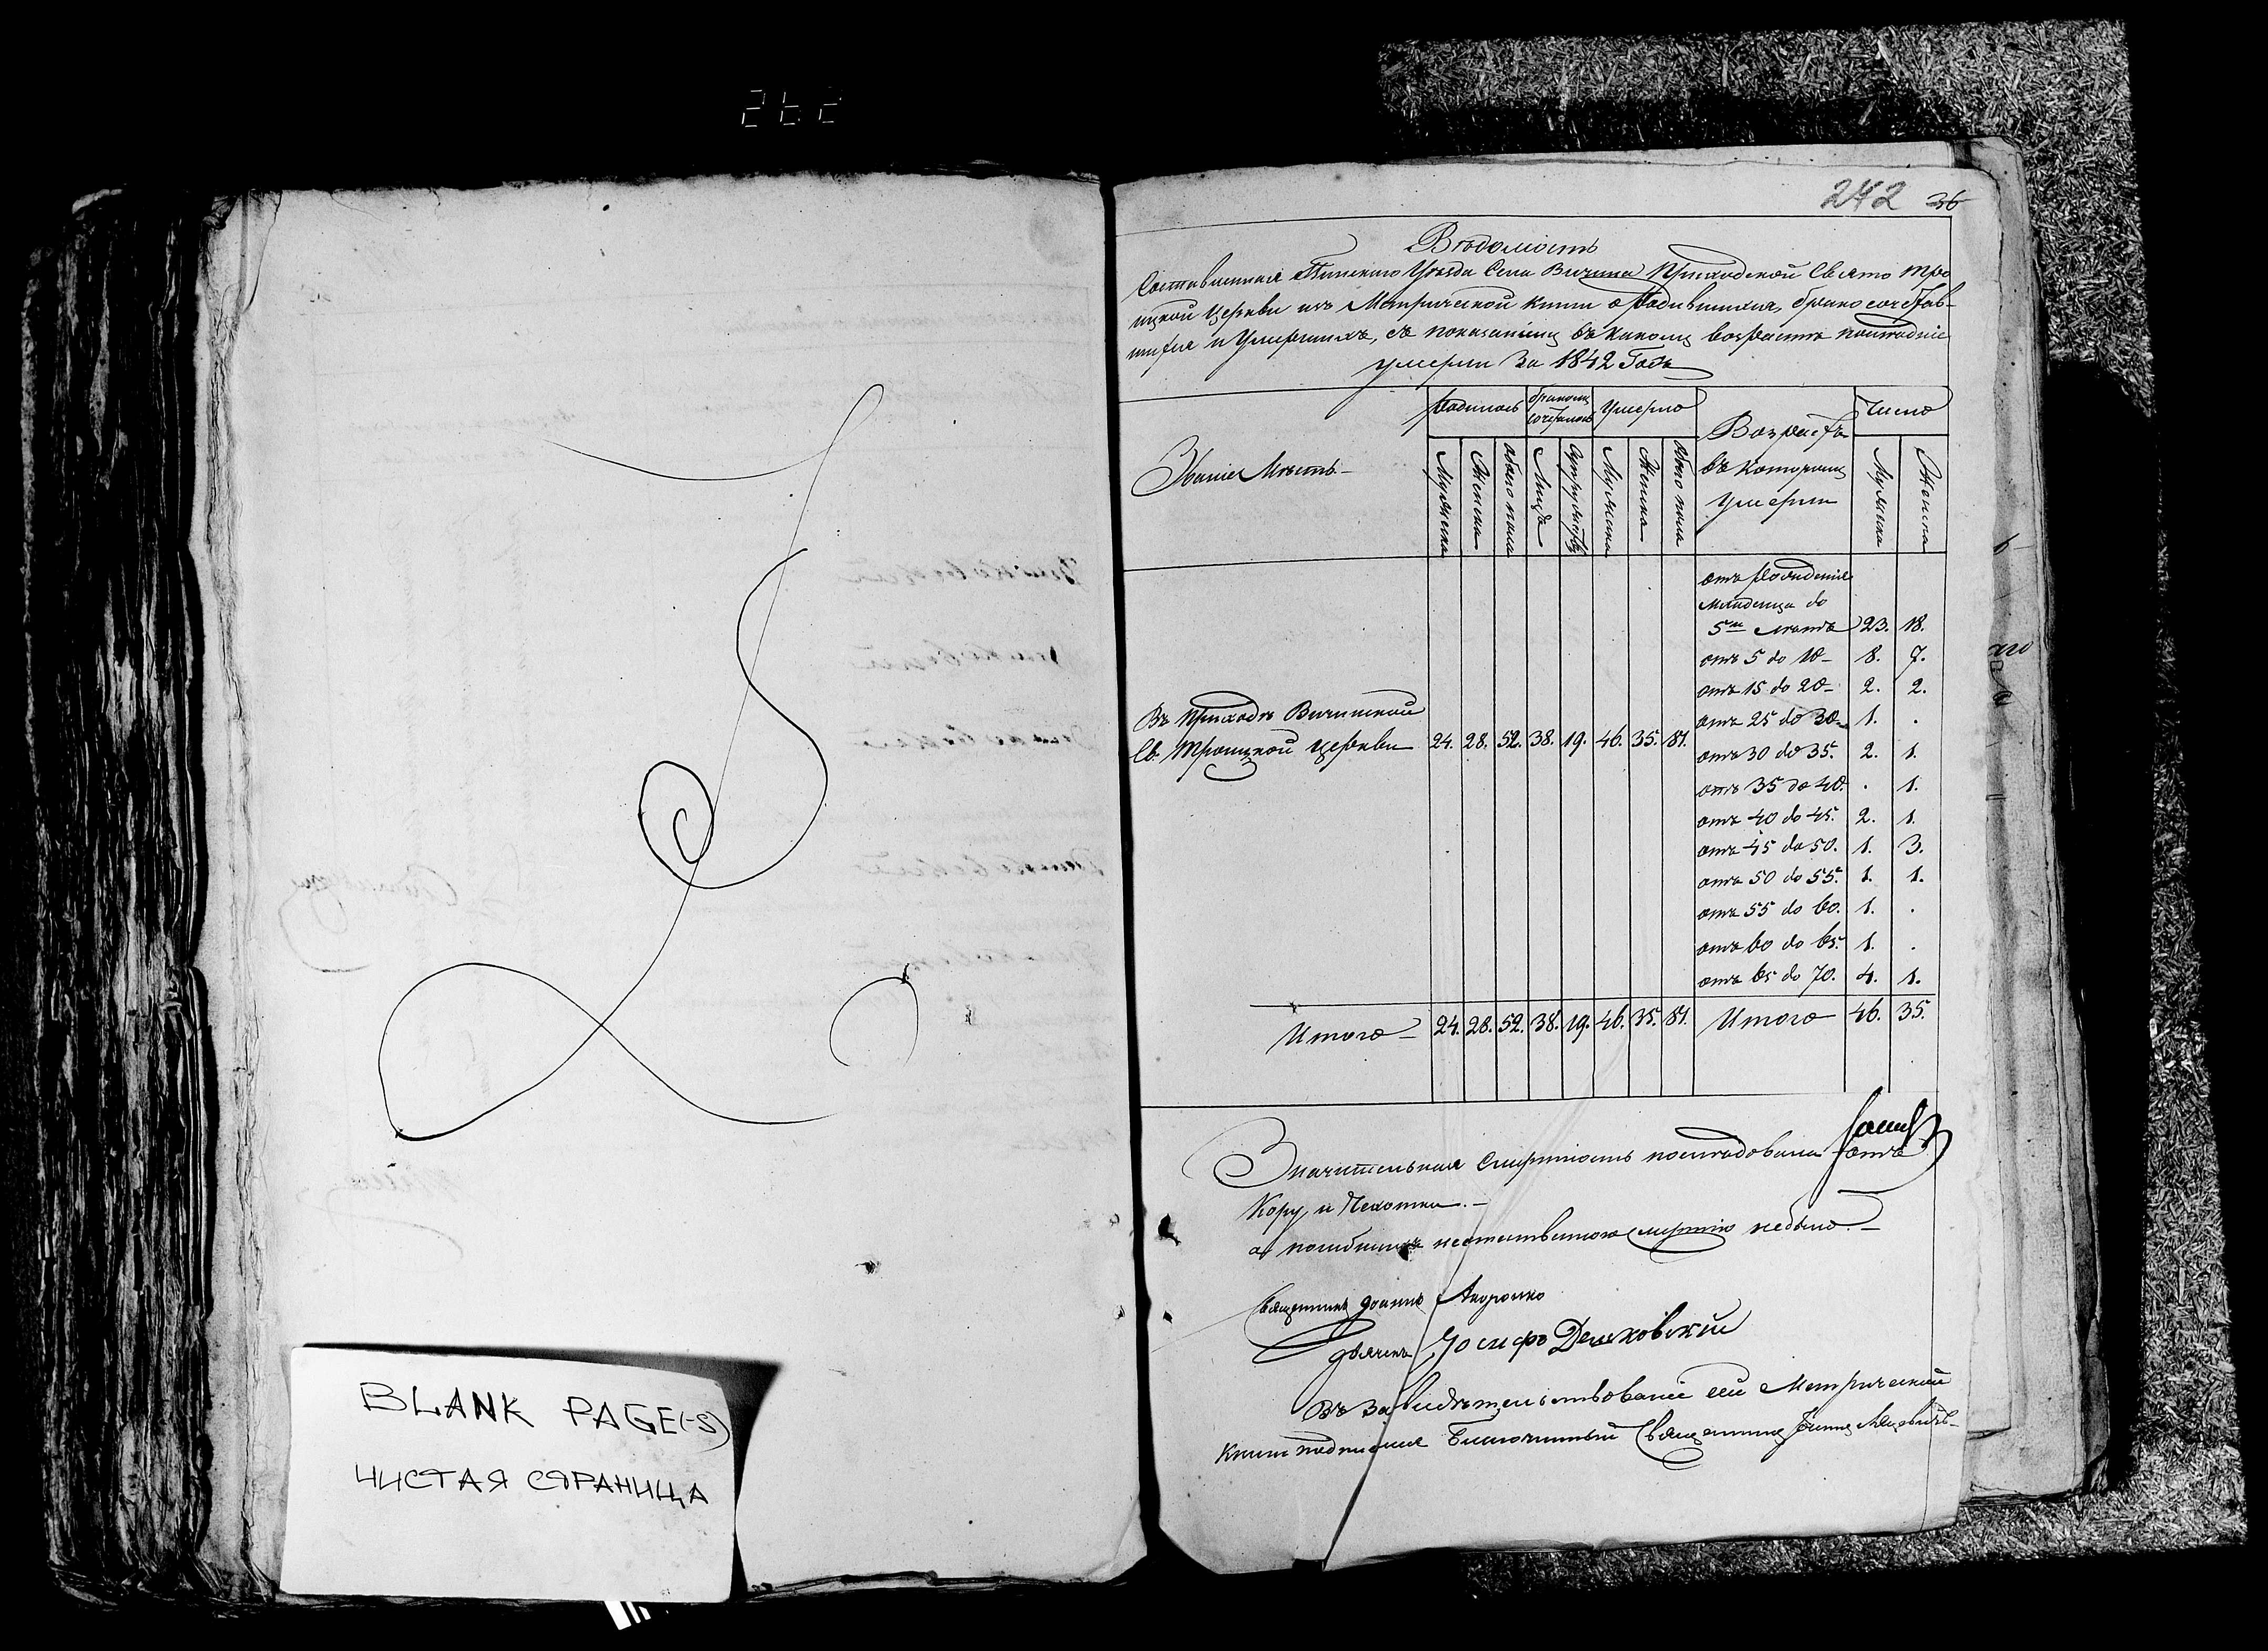 262
242 36
Вѣдомость
Составленная Пинскаго Уѣзда Села Вичина Приходской Свято Тро
ицкой Церкви изъ Метрической книги о родившихся, бракосочетав-
шихся и Умершихъ, съ показаніемъ въ какомъ возрастѣ послѣдніе
умерли За 1842 Годъ
Званіе Мѣстъ
Родилось
Бракомъ сочеталось
Умерло
Возрастъ въ которомъ умерли
Число
Мужеска
Женска
Обоего пола
Лицъ
Супружествъ
Мужеска
Женска
Обоего пола
Мужеска
Женска
отъ Рожденія
младенца до
5ти лѣтъ 23. 18.
отъ 5 до 10 8. 7.
отъ 15 до 20 2. 2.
отъ 25 до 30 1. .
отъ 30 до 35. 2. 1.
отъ 35 до 40. . 1.
отъ 40 до 45. 2. 1.
отъ 45 до 50. 1. 3.
отъ 50 до 55. 1. 1.
отъ 55 до 60. 1. .
отъ 60 до 65. 1. .
отъ 65 до 70. 4. 1.
Въ Приходѣ Вичинской
Св. Троицкой Церкви 24. 28. 52. 38. 19. 46. 35. 81.
Итого 24. 28. 52. 38. 19. 46. 35. 81. Итого 46. 35.
Значительная Смертность послѣдовала отъ
Кору и Чехотки.
а погибшихъ неестественною смертію небыло.
Священникъ Іоаннъ
Дьячекъ Іосифъ Дешковскій
Въ засвидѣтельствованіе сей Метрической
книги подписался Благочинный Священникъ Іоаннъ
BLANK PAGE(-S)
ЧИСТАЯ СТРАНИЦА